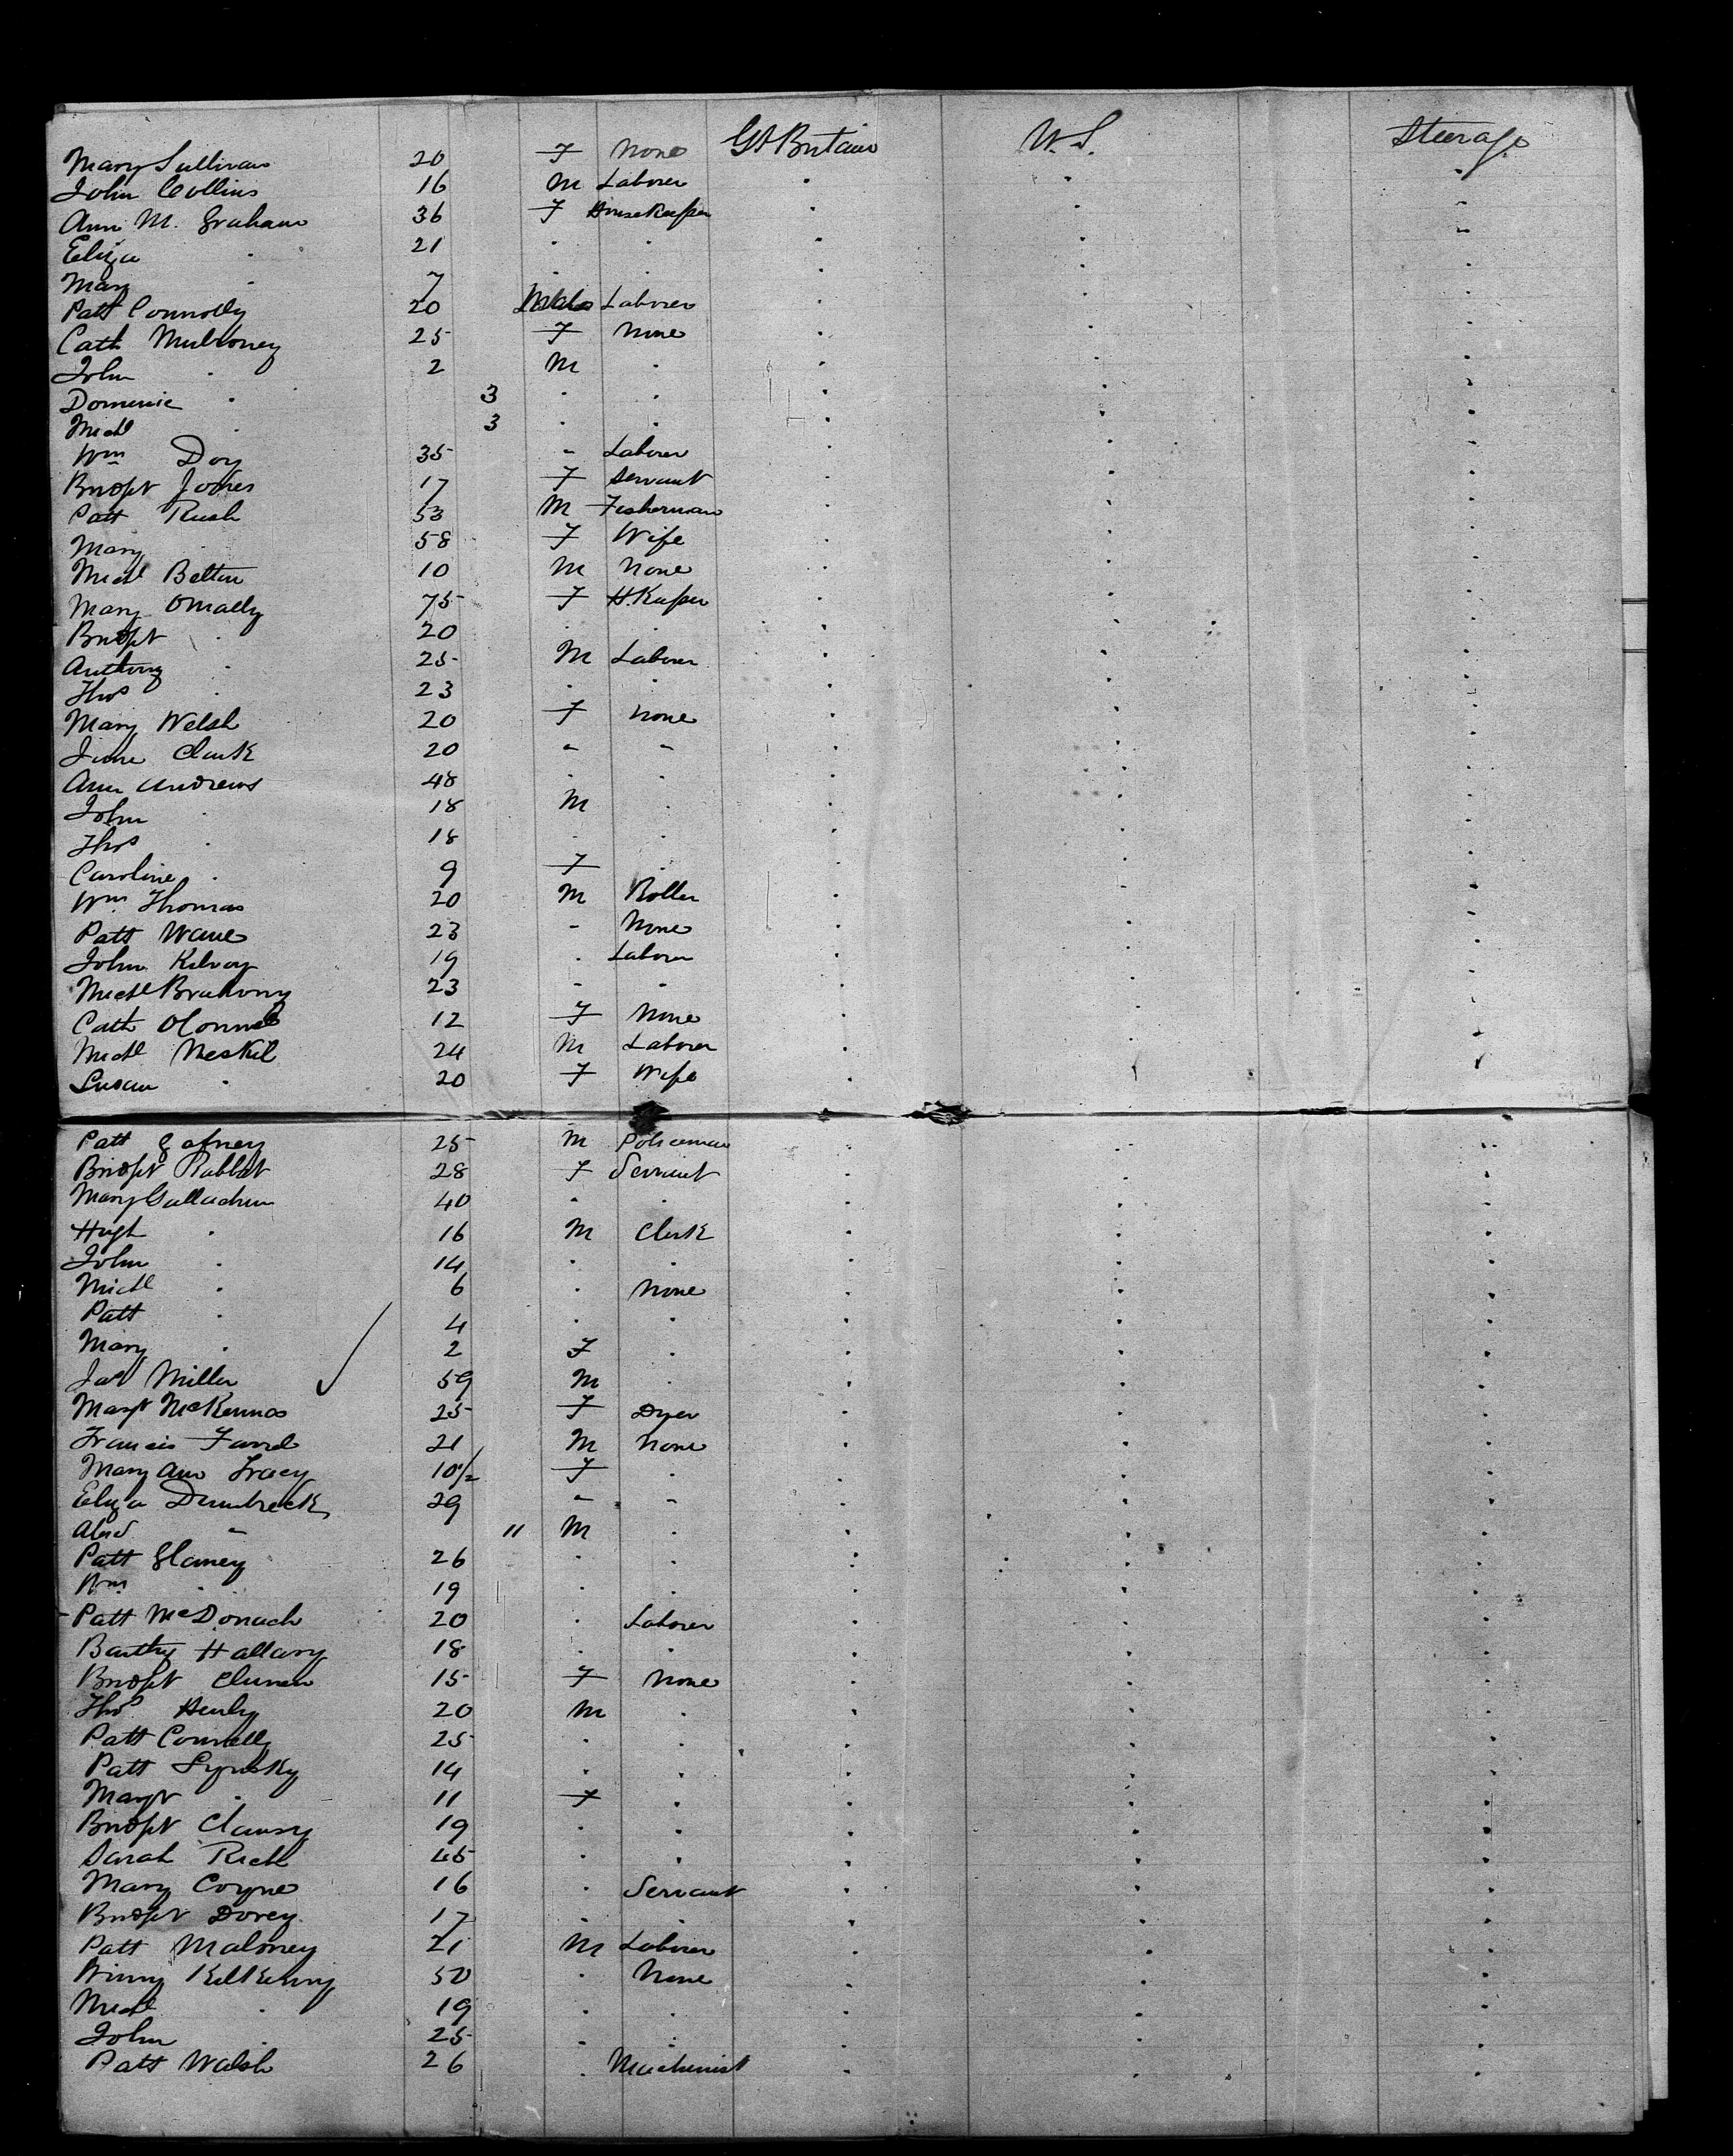 Mary Sullivan 20 F None Gt Britain U.S. Steerage
John Collins 16 M Laborer " " "
Ann M. Graham 36 F Housekeeper " " "
Eliza " 21 " " " " "
Mary " 7 " " " " "
Patt Connolly 20 Male Laborer " " "
Cath Mulroney 25 F None " " "
John " 2 M " " " "
Domenic " 3 " " " " "
Michl " 3 " " " " "
Wm Doy 35 " Laborer " " "
Bridgt Johes 17 F Servant " " "
Patt Rush 53 M Fisherman " " "
Mary " 58 F Wife " " "
Michl Belton 10 M None " " "
Mary OMally 75 F H.Keeper " " "
Bridgt " 20 " " " " "
Anthony " 25 M Laborer " " "
Thos " 23 " " " " "
Mary Welsh 20 F None " " "
Jane Clark 20 " " " " "
Ann Andrews 48 " " " " "
John " 18 M " " " "
Thos " 18 " " " " "
Caroline " 9 F " " " "
Wm Thomas 20 M Roller " " "
Patt Wane 23 " None " " "
John Kilroy 19 " Laborer " " "
Michl 23 " " " " "
Cath OConnel 12 F None " " "
Michl Meskil 24 M Laborer " " "
Susan " 20 F Wife " " "
Patt Gafney 25 M Policeman " " "
Bridgt Rabbit 28 F Servant " " "
Mary Gallacher 40 " " " " "
Hugh " 16 M Clerk " " "
John " 14 " " " " "
Michl " 6 " None " " "
Patt " 4 " " " " "
Mary " 2 F " " " "
Jas Miller 59 M " " " "
Margt McKenna 25 F Dyer " " "
Francis 21 M None " " "
Mary Ann Tracy 10½ F " " " "
Eliza Dumbreck 29 " " " " "
Alexd " 11 M " " " "
Patt Glaney 26 " " " " "
Wm " 19 " " " " "
Patt McDonach 20 " Laborer " " "
Barthy Hallary 18 " " " " "
Bridgt 15 F None " " "
Thos Henly 20 M " " " "
Patt Connelly 25 " " " " "
Patt Lynsky 14 " " " " "
Margt " 11 F " " " "
Bridgt Clansy 19 " " " " "
Sarah Rich 45 " " " " "
Mary Coyne 16 " Servant " " "
Bridgt Dorey 17 " " " " "
Patt Maloney 21 M Laborer " " "
Winny Kilkenny 50 " None " " "
Michl " 19 " " " " "
John " 25 " " " " "
Patt Walsh 26 " Machinist " " "